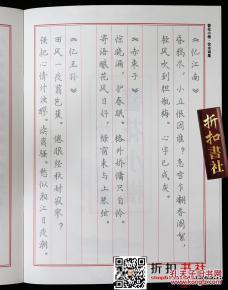 《忆江南》
昏鸦尽,小立恨因谁?急雪乍翻香阁絮,
轻风吹到胆瓶梅,心字已成灰。
《赤枣子》
惊晓漏,护春眠。格外娇慵只自怜。
寄语酿花风日好,绿窗来与上琴弦。
《忆王孙》
西风一夜剪芭蕉。倦眼经秋耐寂寥?
强把心情付浊醪。读离骚。愁似湘江日夜潮。
折扣書社
折扣书社